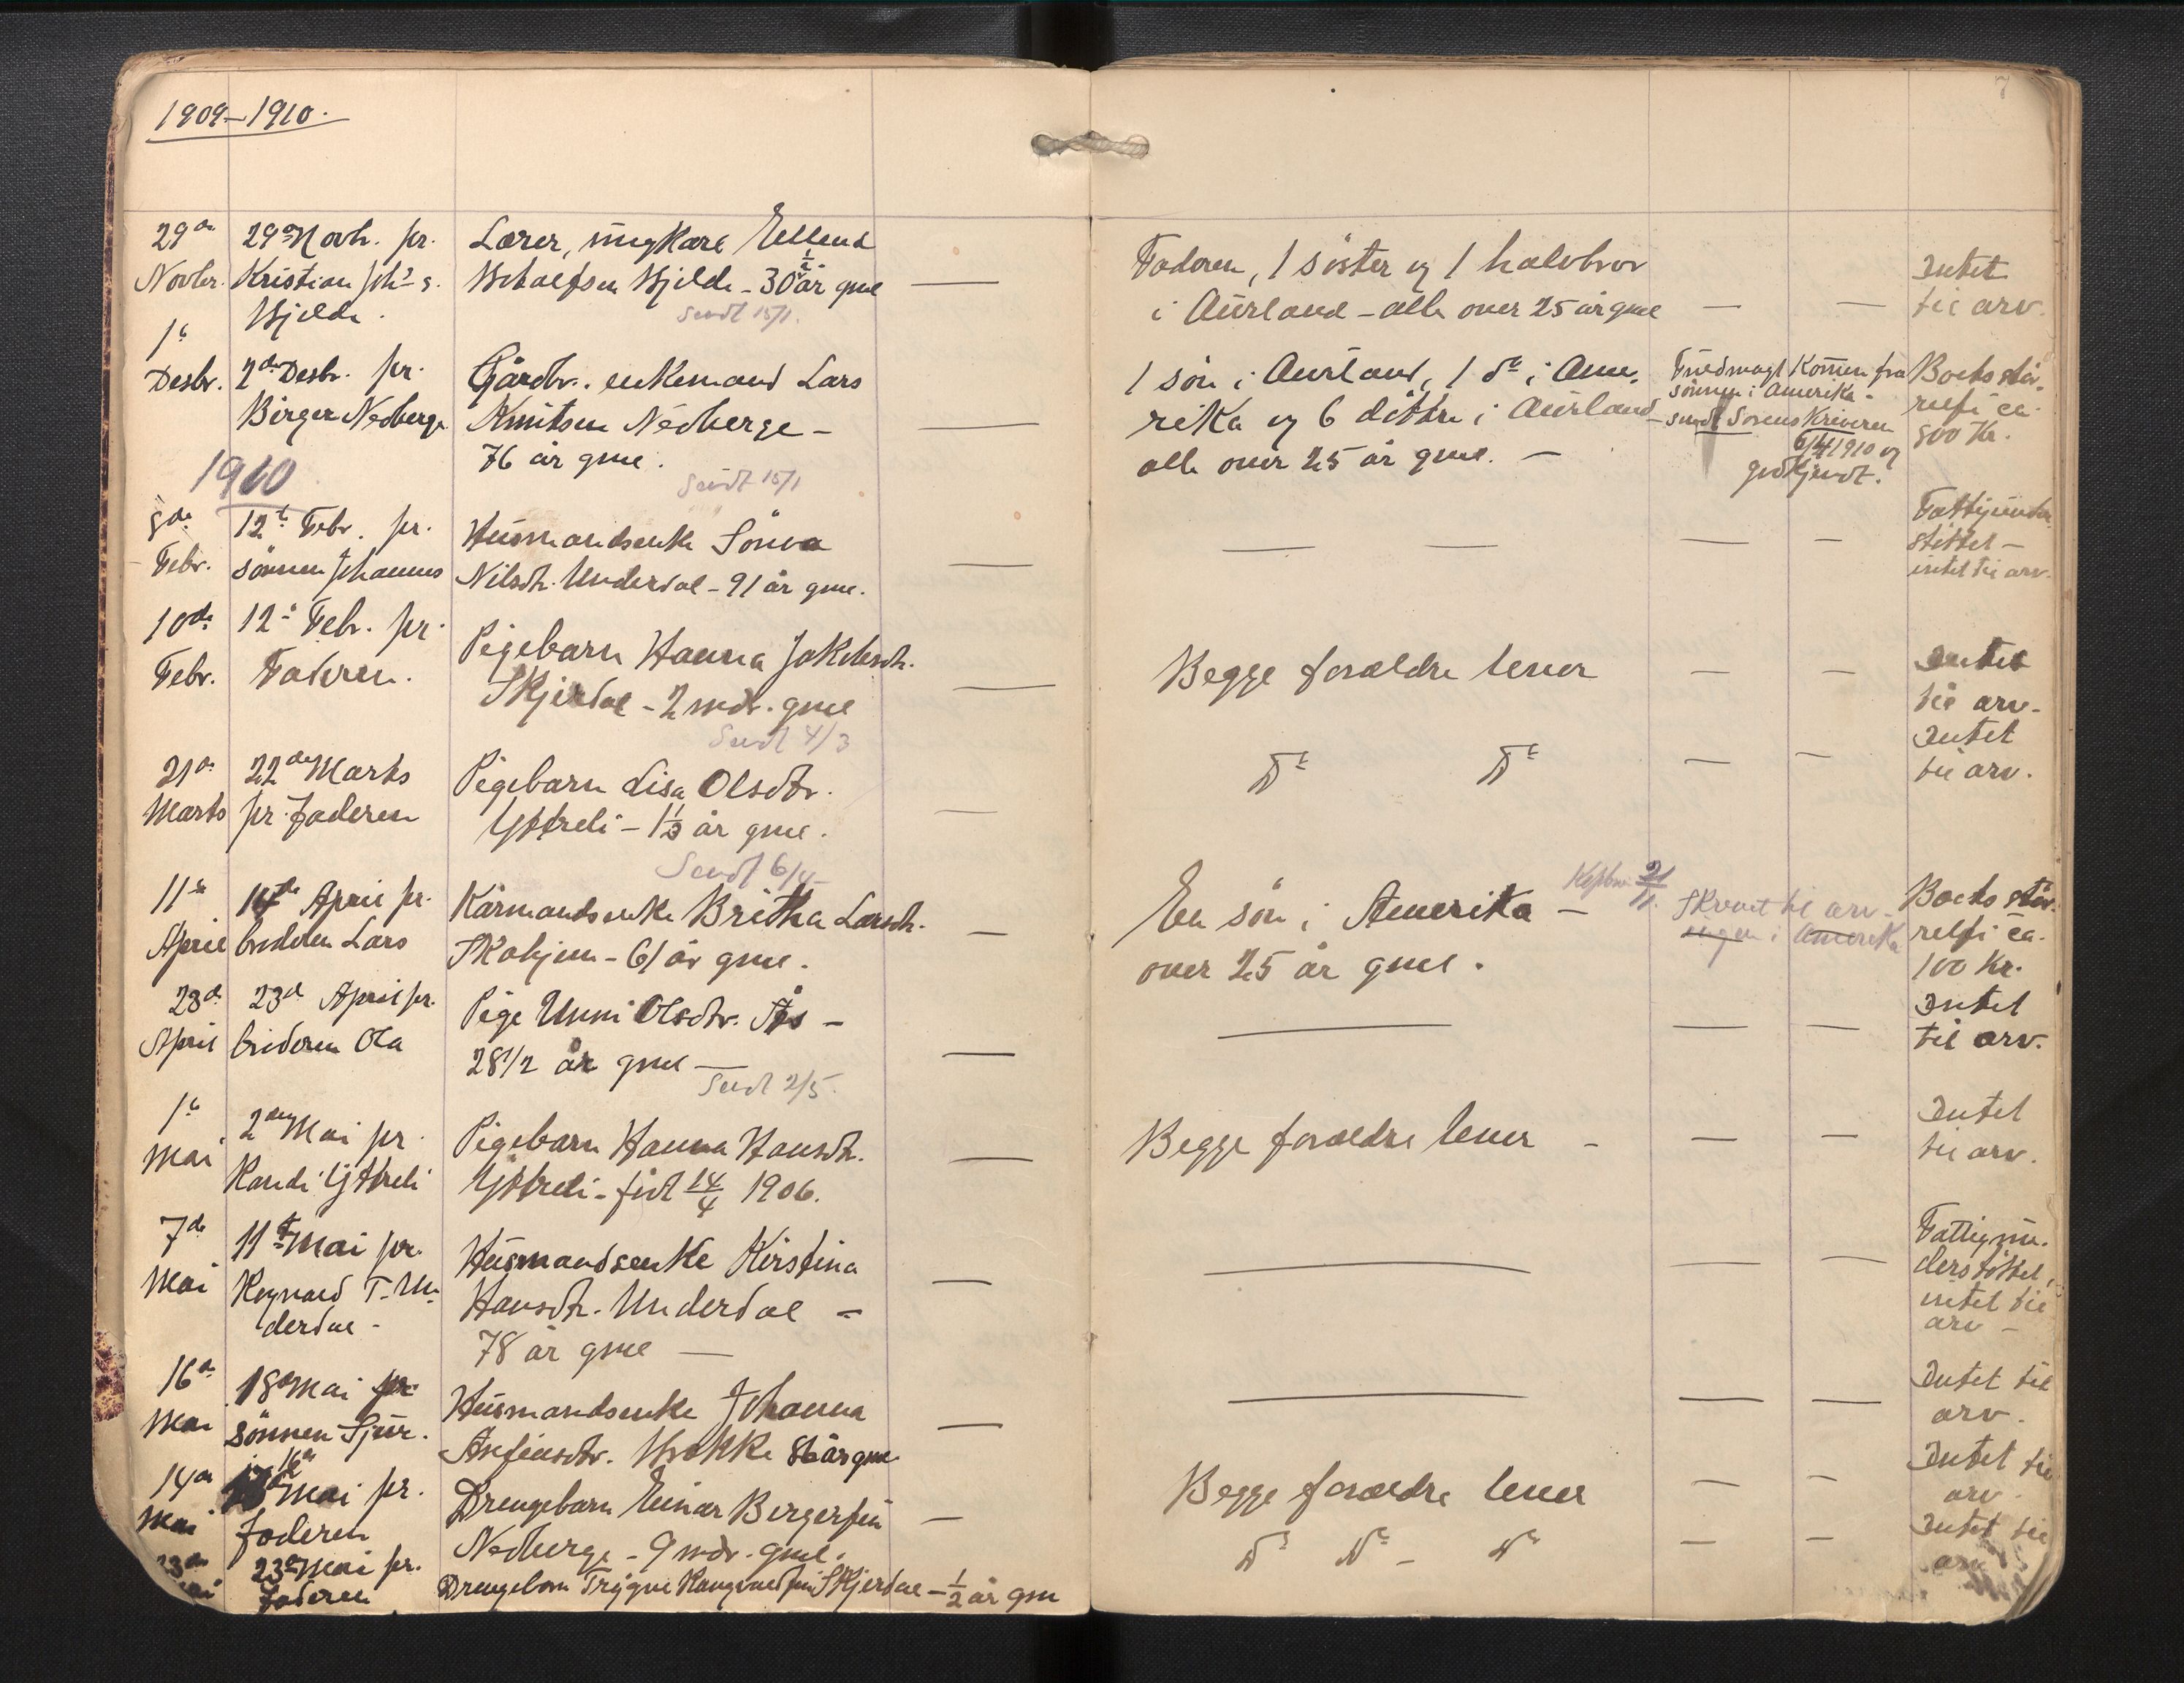 1909–1910.
7
29de 29de Novb. pr. Lærer, ungkarl Ellend
Novbr. Kristian Joh's s. Hjelde – 30 1/2 år gml — Faderen, 1 søster og 1 halvbror — — Intet
Hjelde. Sendt 15/1. i Aurland – alle over 25 år gml til arv.
1te
Desbr. 2den Desbr. pr. Gårdbr. enkemand Lars 1 søn i Aurland, 1 do i Ame- Fuldmagt kommen fra Boets stør-
Birger Nedberge Knutsen Nedberge – — rika og 6 døttre i Aurland – sønnen i Amerika – relse ca.
76 år gml. alle over 25 år gml. – sendt Sorenskriveren 800 Kr.
6/4 1910 og
godkjendt.
1910 Sendt 15/1
8de 12te Febr. pr. Husmandsenke Sønva — — — — Fattigunder
Febr. sønnen Johannes Nilsdtr. Underdal – 91 år gml. — støttet –
intet til arv.
10de 12te Febr. pr. Pigebarn Hanna Jakobsdtr. Begge forældre lever — — Intet
Febr. Faderen. Skjerdal – 2 mdr. gml — til arv.
Sendt 4/3
21de 22de Marts Pigebarn Lisa Olsdtr. Do Do — — Intet
Marts pr. faderen Yttreli – 1 1/3 år gml. — til arv.
Sendt 6/4
11te 14de April pr. Kårmandsenke Britha Larsdtr. En søn i Amerika – 21/11. Skrevet til arv- Boets stør-
April broderen Lars Skahjem – 61 år gml. — over 25 år gml. ingen i Amerika relse ca.
100 Kr.
23de 23de April pr. Pige Unni Olsdtr. Ås – — — — Intet
April broderen Ola 28 1/2 år gml — — til arv.
Sendt 2/5.
1te 2den Mai pr. Pigebarn Hanna Hansdtr. Begge forældre lever – — — Intet
Mai Yttreli Yttreli – født 14/4 1906. — til arv.
7de 11te Mai pr. Husmandsenke Kirstina — — — Fattigun-
Mai T. Un- Hansdtr. Underdal – — derstøttet,
derdal – 78 år gml — intet til
arv –
16de 18de Mai pr. Husmandsenke Johanna — — — Intet til
Mai sønnen Sjur. Anfinsdtr. 86 år gml — arv.
14de 16de Mai pr. Drengebarn Einar Bergersen Begge forældre lever — — Intet til
Mai faderen Nedberge – 9 mdr. gml. — arv.
23de 23de Mai pr. Drengebarn Trygve Skjerdal – 1/2 år gml Do Do – Do — — Intet til
Mai faderen arv